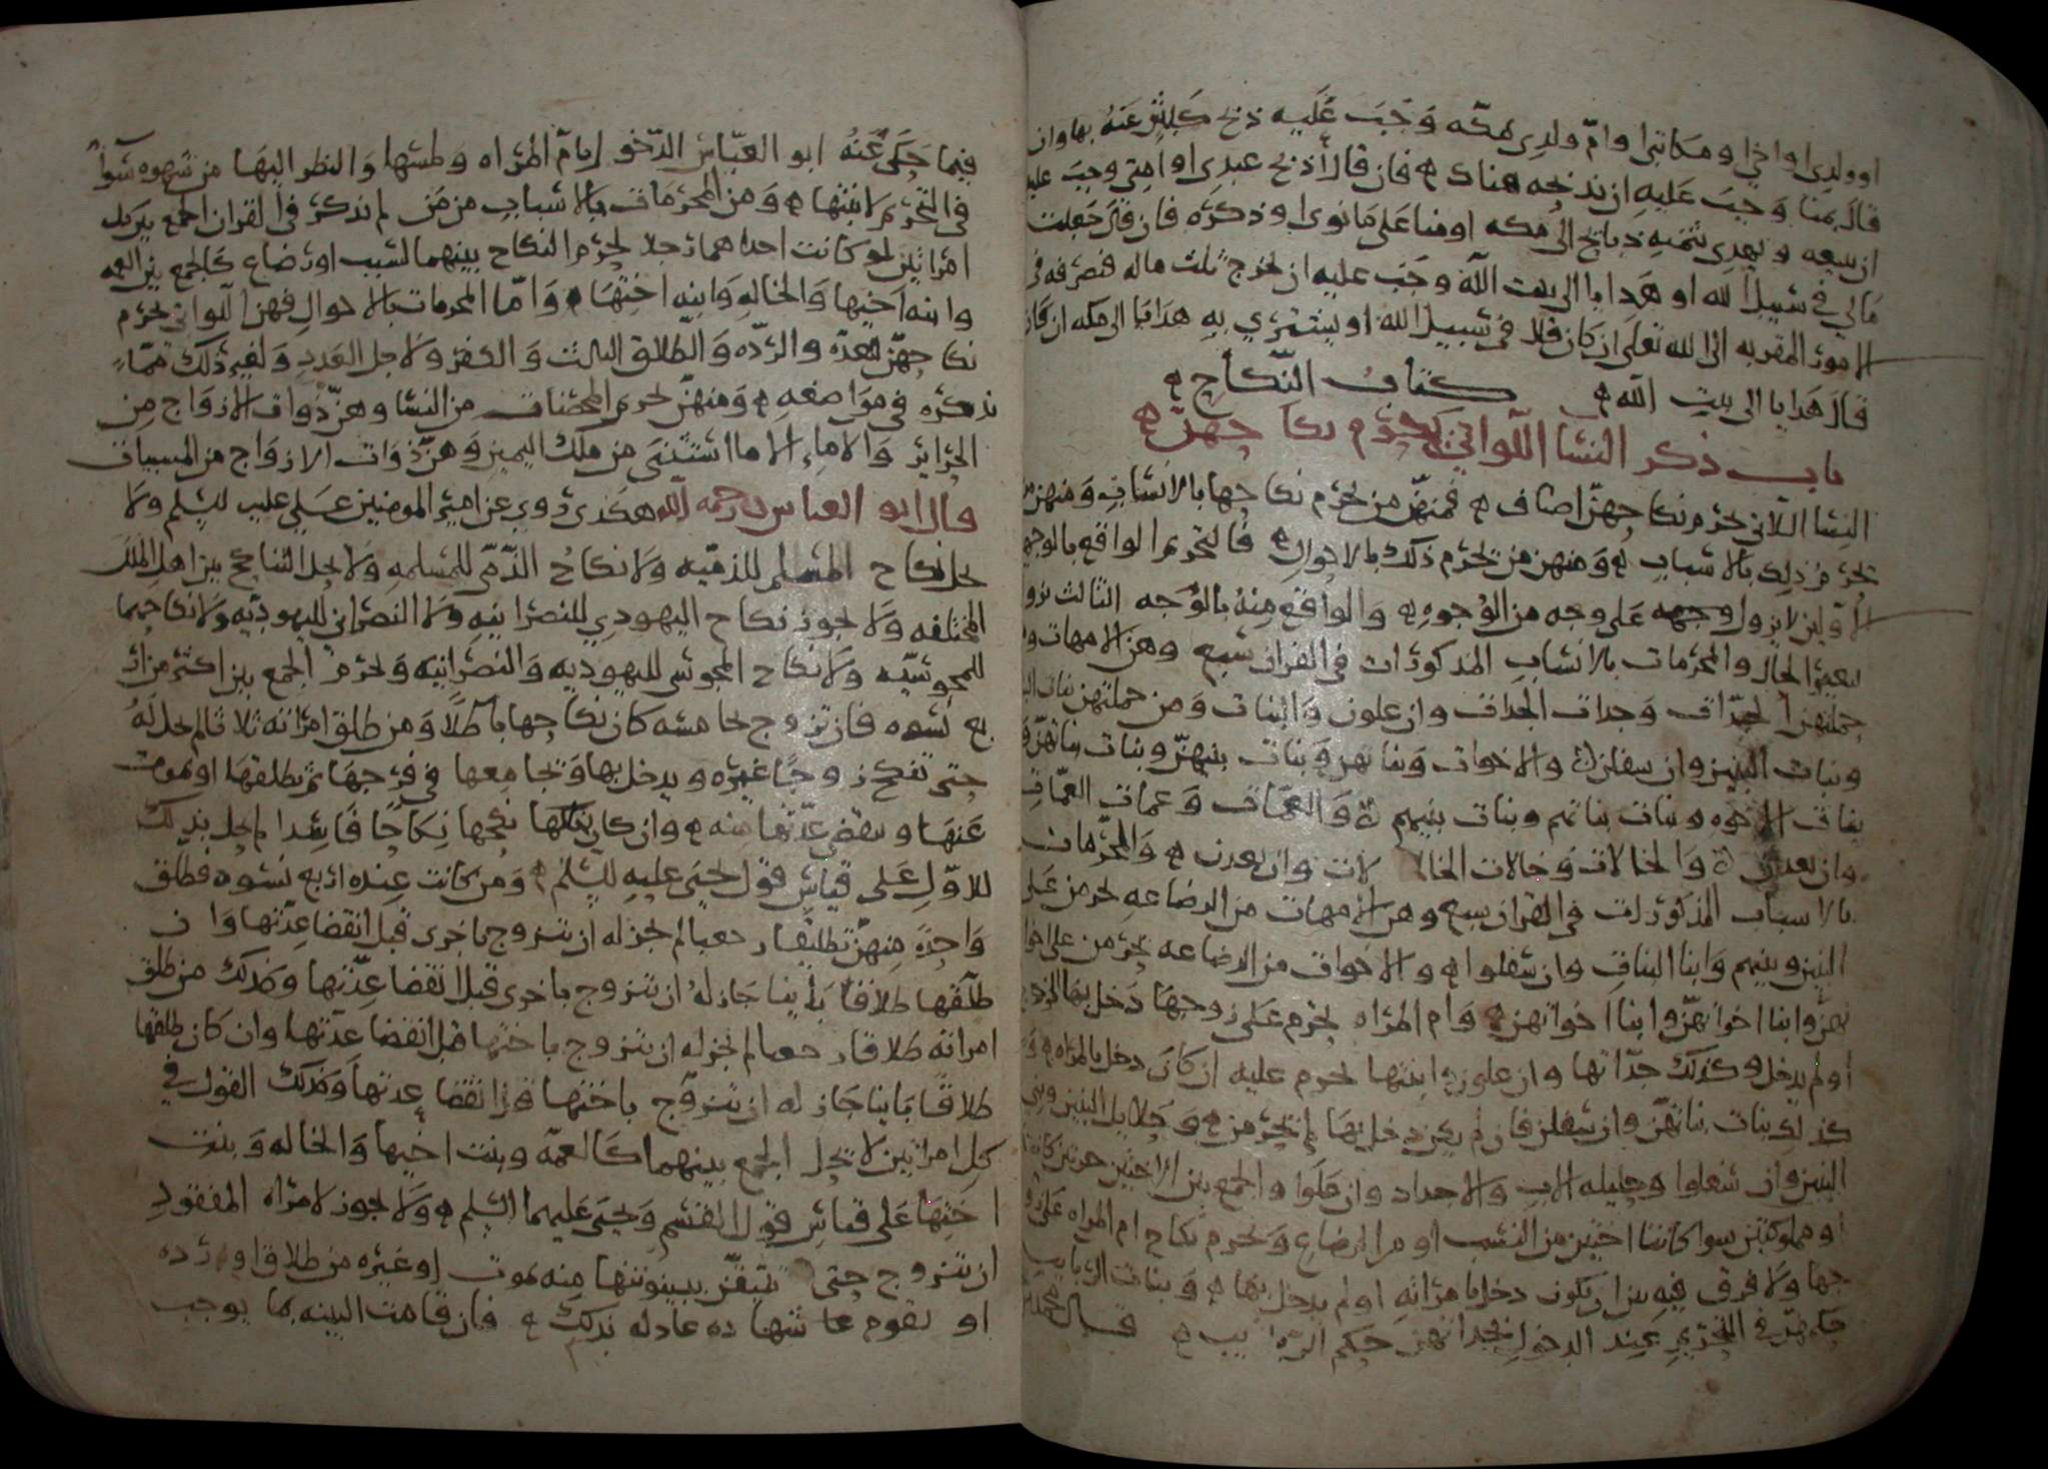 او ولدي او اخي او مكاتبي او ام ولدي بمكه وجب عليه ذبح كبش عنه بها وان
قال بمنا وجب عليه ان يذبحه هناك فان قال اذبح عبدي او امتي وجب عليه
ان يبيعه و يهدي بثمنه ذبايح الى مكه او منا على ما نوى او ذكره فان قال جعلت
مالي في سبيل الله او هدايا الى بيت الله وجب عليه ان يخرج ثلث ماله فيصرفه في
الامور المقربه الى الله تعلى ان كان قال في سبيل الله او يشتري به هدايا الى مكه ان كان
قال هدايا الى بيت الله كتاب النكاح
باب ذكر النسا اللواتي يحرم نكاحهن
النسا اللاتي يحرم نكاحهن اصناف فمنهن من يحرم نكاحها بالانساب ومنهن من
يحرم ذلك بالاسباب ومنهن من يحرم ذلك بالاحوال فالتحريم الواقع بالوجهين
الاولين لا يزول وجهه على وجه من الوجوه والواقع منه بالوجه الثالث يزول
بتغير الحال والمحرمات بالانساب المذكورات في القران سبع وهن الامهات ومن
جملتهن الجدات وجدات الجدات وان علون والبنات ومن جملتهن بنات البنات
وبنات البنين وان سفلن والاخوات وبناتهن وبنات بنيهن وبنات بناتهن و
بنات الاخوه وبنات بناتهم وبنات بنيهم والعمات وعمات العمات
وان بعدن والخالات وخالات الخالات وان بعدن والمحرمات
بالاسباب المذكورات في القران سبع وهن الامهات من الرضاعه يحرمن على
البنين وبنيهم وابنا البنات وان سفلوا والاخوات من الرضاعه يحرمن على اخوا
نهن وابنا اخوانهن وابنا اخواتهن وام المراه يحرم على زوجها دخل بها الزوج
او لم يدخل وكذلك جداتها وان علون وابنتها يحرم عليه ان كان دخل بالمراه و
كذلك بنات بناتهن وان سفلن فان لم يكن دخل بها لم يحرمن وحلايل البنين وبني
البنين وان سفلوا وحليله الاب والاجداد وان علوا والجمع بين الاختين حرتين كانتا
او مملوكتين سوا كانتا اختين من النسب او من الرضاع ويحرم نكاح ام المراه على زو
جها ولا فرق فيه بين ان يكون دخل بامراته او لم يدخل بها وبنات الربايب
حكمهن في التحريم عند الدخول بجداتهن حكم الربايب قال
فيما حكى عنه ابو العباس الدخول بام المراه ولمسها والنظر اليها من شهوه سوا
في التحريم لابنتها ومن المحرمات بالاسباب من من لم يذكر في القران الجمع بين كل
امراتين لو كانت احداهما رجلا لحرم النكاح بينهما لنسب او رضاع كالجمع بين العمه
وابنه اخيها والخاله وابنه اختها واما المحرمات بالاحوال فهن اللواتي يحرم
نكاحهن للعده والرده والطلاق الثالث والكفر ولاجل العدد ولغير ذلك مما
نذكره في مواضعه ومنهن تحريم المحصنات من النسا وهن ذوات الازواج من
الحراير والاماء الا ما استثنى من ملك اليمين وهن ذوات الازواج من المسبيات
قال ابو العباس رحمه الله هكذى روي عن امير المومنين علي عليه السلم ولا
يحل نكاح المسلم للذميه ولا نكاح الذمي للمسلمه ولا يحل التناكح بين اهل الملل
المختلفه ولا يجوز نكاح اليهودي للنصرانيه ولا النصراني لليهوديه ولا نكاحهما
للمجوسيه ولا نكاح المجوسي لليهوديه والنصرانيه ويحرم الجمع بين اكثر من ار
بع نسوه فان تزوج بخامسه كان نكاحها باطلا ومن طلق امراته ثلاثا لم يحل له
حتى تنكح زوجا غيره ويدخل بها ويجامعها في فرجها ثم يطلقها او يموت
عنها وينقضي عدتها منه وان كان نكحها نكاحا فاسدا لم يحل بذلك
للاول على قياس قول يحيى عليه السلم ومن كانت عنده اربع نسوه فطلق
واحدة منهن تطليقا رجعيا لم يجز له ان يتزوج باخرى قبل انقضا عدتها وان
طلقها طلاقا باينا جاز له ان يتزوج باخرى قبل انقضا عدتها وكذلك من طلق
امراته طلاقا رجعيا لم يجز له ان يتزوج باختها قبل انقضا عدتها وان كان طلقها
طلاقا باينا جاز له ان يتزوج باختها قبل انقضا عدتها وكذلك القول في
كل امراتين لا يحل الجمع بينهما كالعمه وبنت اخيها والخاله وبنت
اختها على قياس قول القسم ويحيى عليهما السلم ولا يجوز لامراه المفقود
ان تتزوج حتى تتيقن بينونتها منه بموت او غيره من طلاق او رده
او تقوم شهاده عادله بذلك فان قامت البينه بما يوجب